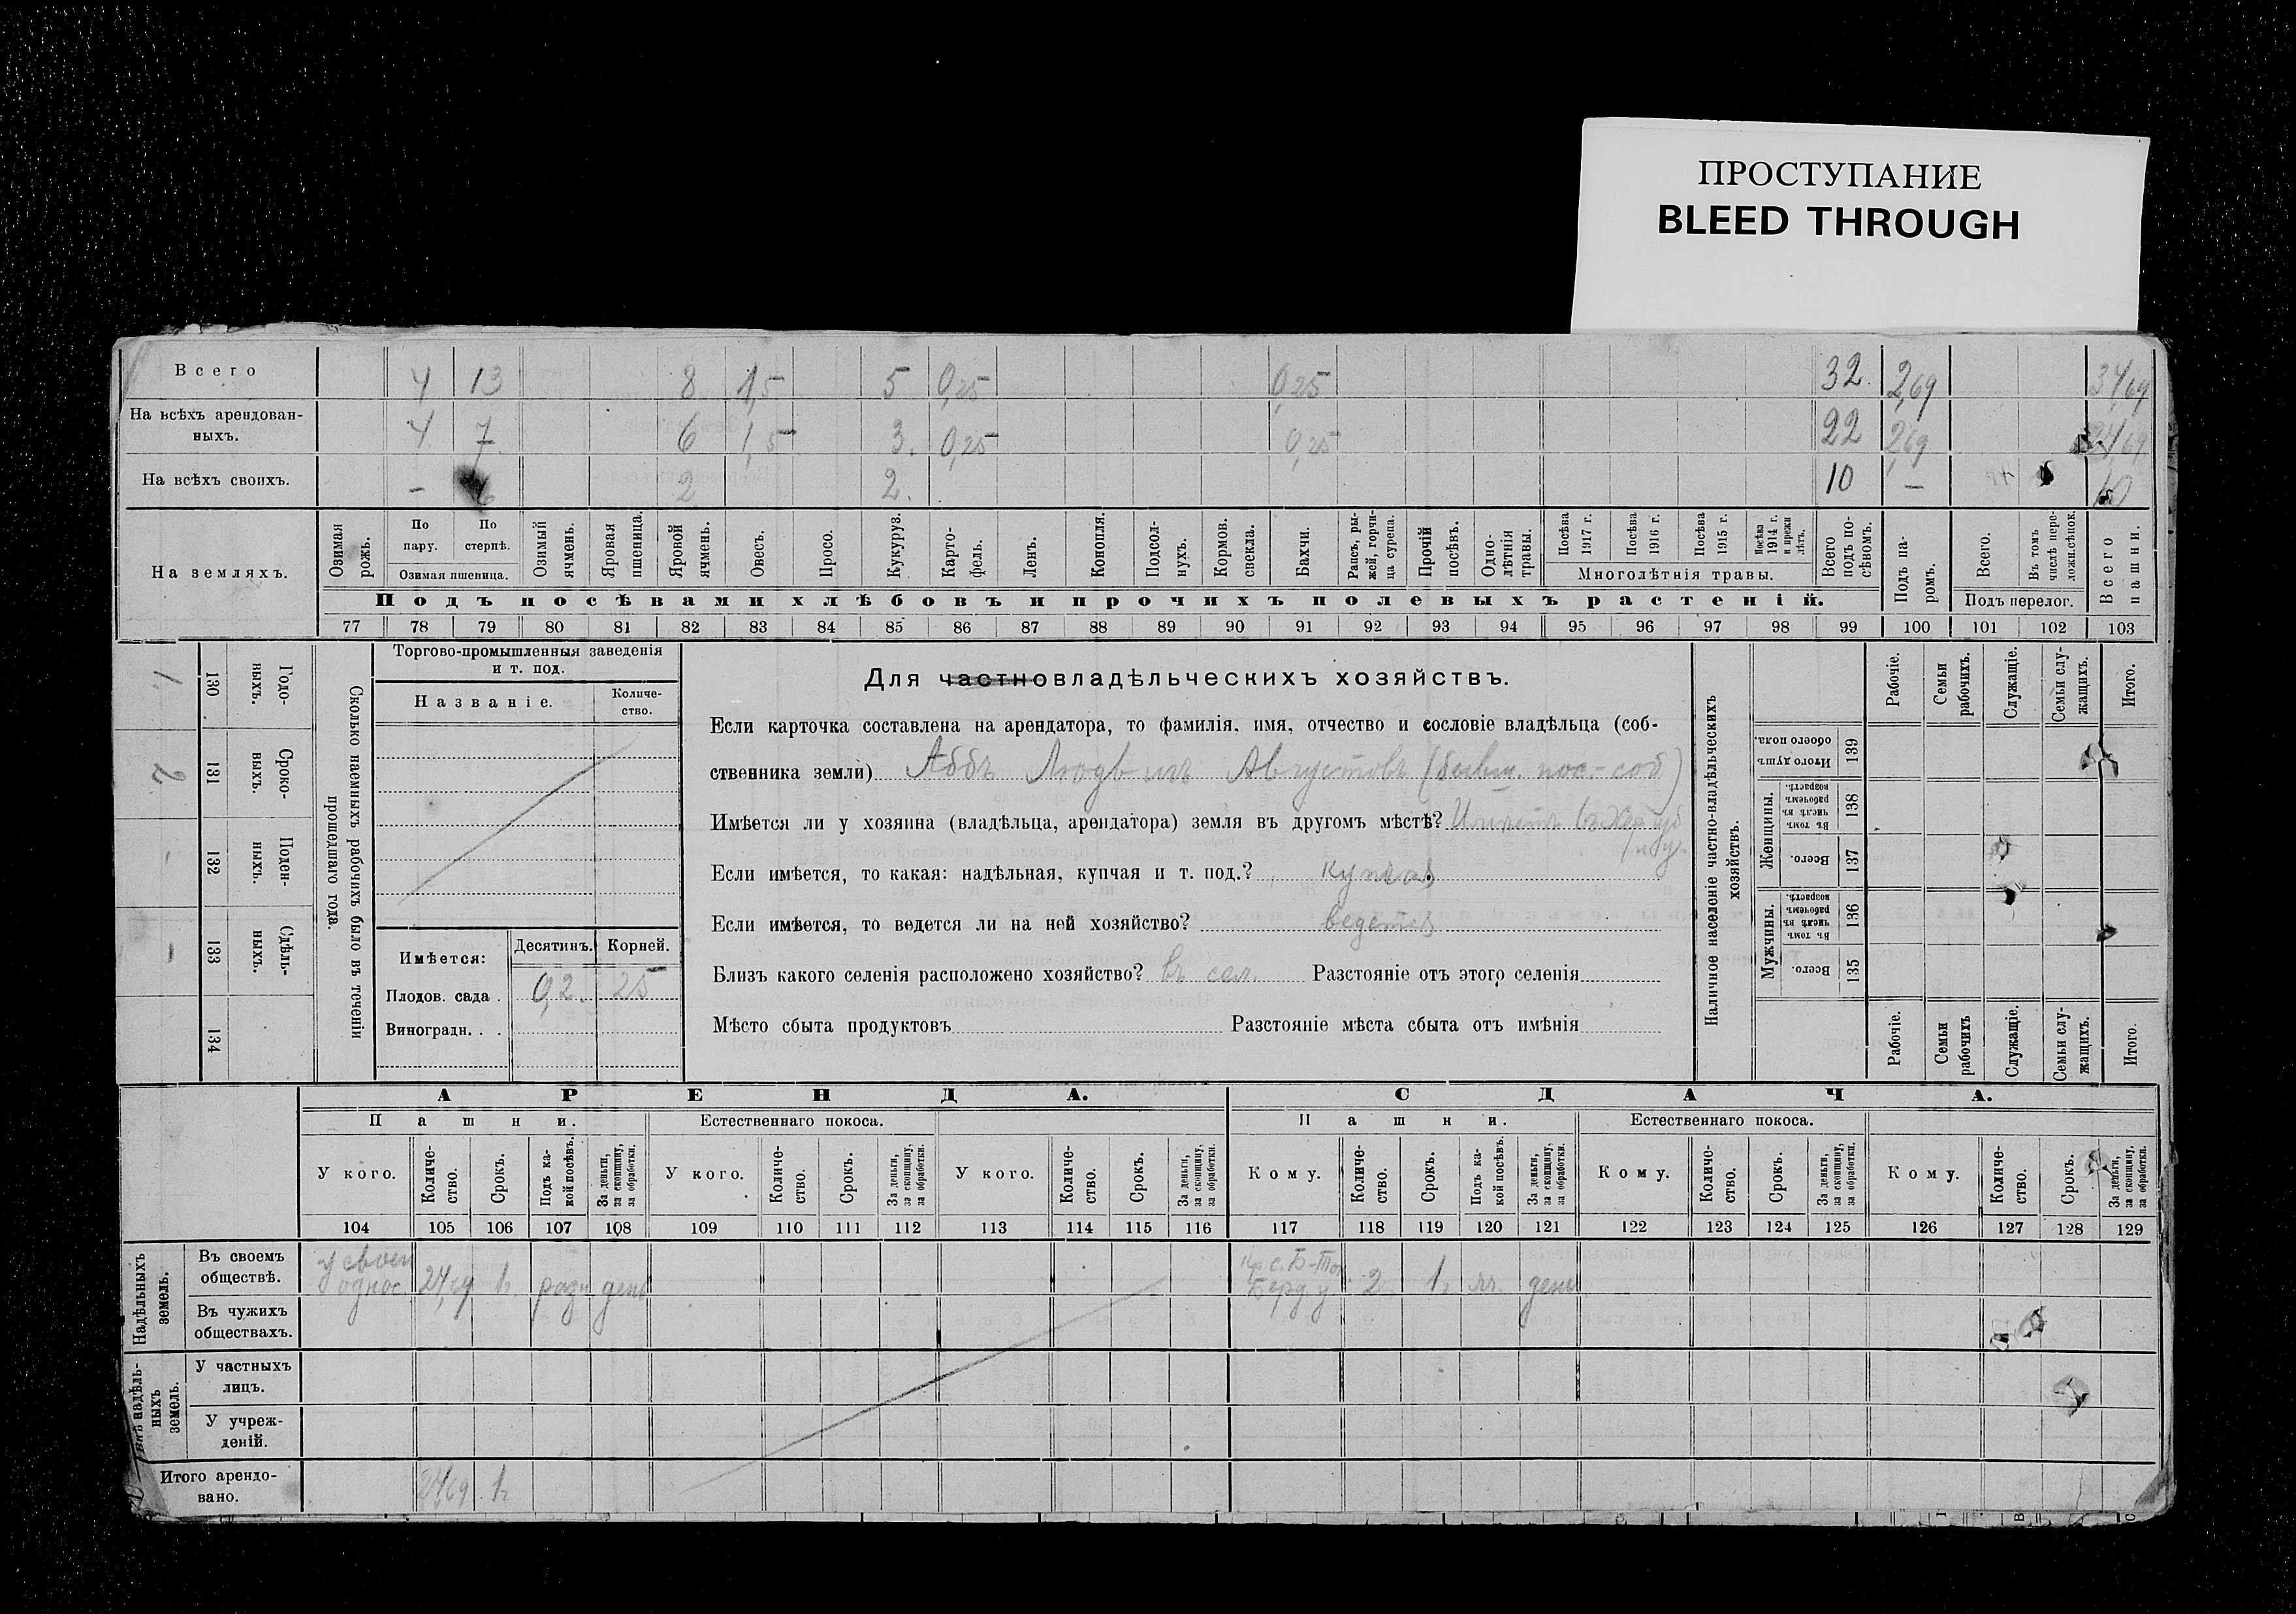 ПРОСТУПАНИЕ
BLEED THROUGH
Всего 4 13 8 1,5 5 0,25 0,25 32 2,69 34,69
На всѣхъ арендован-
ныхъ. 4 7 6 1,5 3. 0,25 0,25 22 2,69
На всѣхъ своихъ. – 6 2 2. 10 – 10
На земляхъ.
Озимая рожь.
По пару.
По стернѣ.
Озимая пшеница.
Озимый ячмень.
Яровая пшеница.
Яровой ячмень.
Овесъ.
Просо.
Кукуруз.
Карто-
фель.
Ленъ.
Конопля.
Подсол-
нухъ.
Кормов.
свекла.
Бахчи.
Рапсъ, ры-
жей, горчи-
ца сурепа.
Прочій
посѣвъ.
Одно-
лѣтнія
травы.
Посѣва
1917 г.
Посѣва
1916 г.
Посѣва
1915 г.
Посѣва
1914 г.
и прежн
лѣтъ.
Многолѣтнія травы.
Всего
подъ по-
сѣвомъ.
Подъ па-
ромъ.
Всего.
Въ томъ
числѣ пере-
ложн.сѣнок.
Подъ перелог.
Всего
пашни.
Подъ посѣвами хлѣбовъ и прочихъ полевыхъ растеній.
77 78 79 80 81 82 83 84 85 86 87 88 89 90 91 92 93 94 95 96 97 98 99 100 101 102 103
1. 130 Годо-
ныхъ.
2 131 Сроко-
выхъ.
- 132 Поден-
ныхъ.
- 133 Сдѣль-
ныхъ.
134
Сколько наемныхъ рабочихъ было въ теченіи
прошедшаго года.
Торгово-промышленныя заведенія
и т. под.
Названіе.
Количе-
ство.
Имѣется: Десятинъ. Корней.
Плодов. сада . 0,2. 25
Виноградн. . .
Для частновладѣльческихъ хозяйствъ.
Если карточка составлена на арендатора, то фамилія, имя, отчество и сословіе владѣльца (соб-
ственника земли) Аббъ Людвигъ Августовъ (бывш. пос.-соб)
Имѣется ли у хозяина (владѣльца, арендатора) земля въ другомъ мѣстѣ?
Если имѣется, то какая: надѣльная, купчая и т. под.? купчая
Если имѣется, то ведется ли на ней хозяйство? ведется
Близъ какого селенія расположено хозяйство? въ сел. Разстояніе отъ этого селенія
Мѣсто сбыта продуктовъ Разстояніе мѣста сбыта отъ имѣнія
Наличное населеніе частно-владѣльческихъ
хозяйствъ.
Рабочіе.
Семьи
рабочихъ.
Служащіе.
Семьи слу-
жащихъ.
Итого.
Итого душъ
обоего пола. 139
Женщины.
Въ томъ
числѣ въ
рабочемъ
возрастѣ. 138
Всего. 137
Мужчины.
Въ томъ
числѣ въ
рабочемъ
возрастѣ. 136
Всего. 135
Рабочіе.
Семьи
рабочихъ
Служащіе.
Семьи слу-
жащихъ.
Итого.
АРЕНДА. СДАЧА.
Пашни. Естественнаго покоса. Пашни. Естественнаго покоса.
У кого.
Количе-
ство.
Срокъ.
Подъ ка-
кой посѣвъ.
За деньги,
за скопщину,
за обработки.
У кого.
Количе-
ство.
Срокъ.
За деньги,
за скопщину,
за обработки.
У кого.
Количе-
ство.
Срокъ.
За деньги,
за скопщину,
за обработки.
Кому.
Количе-
ство.
Срокъ.
Подъ ка-
кой посѣвъ.
За деньги,
за скопщину,
за обработки.
Кому.
Количе-
ство.
Срокъ.
За деньги,
за скопщину,
за обработки.
Кому.
Количе-
ство.
Срокъ.
За деньги,
за скопщину,
за обработки.
104 105 106 107 108 109 110 111 112 113 114 115 116 117 118 119 120 121 122 123 124 125 126 127 128 129
Надѣльныхъ
земель.
Въ своемъ
обществѣ. у своихъ
однос. 24,69 1 разн ден 2 1 ден
Въ чужихъ
обществахъ.
Внѣ надѣль-
ныхъ
земель.
У частныхъ
лицъ.
У учреж-
деній.
Итого арендо-
вано. 24,69 1